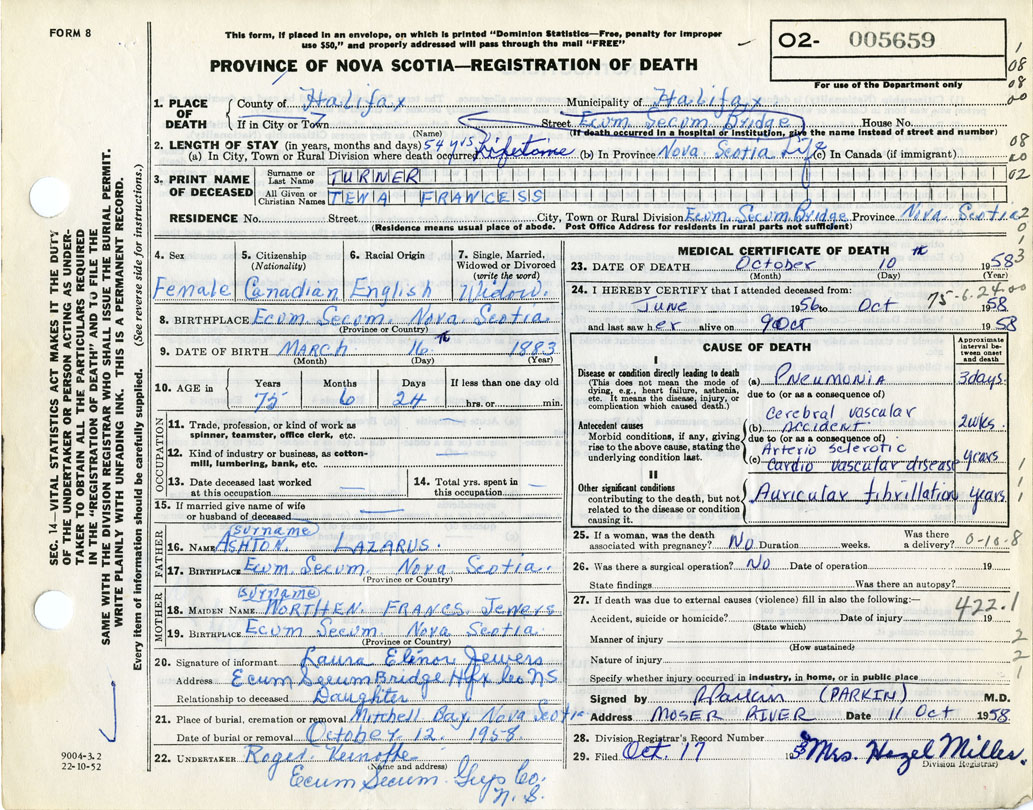 FORM 8
This form, if placed in an envelope, on which is printed "Dominion Statistics—Free, penalty for improper
use $50," and properly addressed will pass through the mail "FREE"
PROVINCE OF NOVA SCOTIA—REGISTRATION OF DEATH
02- 005659
For use of the Department only
1. PLACE OF DEATH
County of Halifax Municipality of Halifax
If in City or Town Street Ecum Secum Bridge House No.
(Name) (If death occurred in a hospital or institution, give the name instead of street and number)
2. LENGTH OF STAY (in years, months and days) 54 yrs
(a) In City, Town or Rural Division where death occurred Lifetome (b) In Province Nova Scotia Life (c) In Canada (if immigrant)
3. PRINT NAME OF DECEASED
Surname or Last Name TURNER
All Given or Christian Names TENA FRANCESS
RESIDENCE No. Street City, Town or Rural Division Ecum Secum Bridge Province Nova Scotia
(Residence means usual place of abode. Post Office Address for residents in rural parts not sufficient)
4. Sex Female
5. Citizenship (Nationality) Canadian
6. Racial Origin English
7. Single, Married, Widowed or Divorced (write the word) Widow
8. BIRTHPLACE Ecum Secum Nova Scotia
(Province or Country)
9. DATE OF BIRTH MARCH 16th 1883
(Month) (Day) (Year)
10. AGE in Years 75 Months 6 Days 24 If less than one day old hrs. or min.
OCCUPATION
11. Trade, profession, or kind of work as spinner, teamster, office clerk, etc.
12. Kind of industry or business, as cotton-mill, lumbering, bank, etc.
13. Date deceased last worked at this occupation
14. Total yrs. spent in this occupation
15. If married give name of wife or husband of deceased
FATHER
surname
16. NAME ASHTON LAZARUS.
17. BIRTHPLACE Ecum Secum Nova Scotia
(Province or Country)
MOTHER
surname
18. MAIDEN NAME Francs Jewers
19. BIRTHPLACE Ecum Secum Nova Scotia
(Province or Country)
20. Signature of informant Laura Elinor Jewers
Address Ecum Secum Bridge Hfx Co NS
Relationship to deceased Daughter
21. Place of burial, cremation or removal Mitchell Bay Nova Scotia
Date of burial or removal October 12. 1958
22. UNDERTAKER Roger
(Name and address)
Ecum Secum Guys Co.
N.S.
MEDICAL CERTIFICATE OF DEATH
23. DATE OF DEATH October 10th 1958
(Month) (Day) (Year)
24. I HEREBY CERTIFY that I attended deceased from:
75-6-24
June 1956 to Oct 1958
and last saw her alive on 9 Oct 1958
CAUSE OF DEATH
Approximate interval between onset and death
I
Disease or condition directly leading to death
(This does not mean the mode of dying, e.g., heart failure, asthenia, etc. It means the disease, injury, or complication which caused death.)
(a) PNEUMONIA 3 days
due to (or as a consequence of)
Antecedent causes
Morbid conditions, if any, giving rise to the above cause, stating the underlying condition last.
(b) Cerebral vascular accident 2 wks.
due to (or as a consequence of)
(c) Arterio sclerotic cardio vascular disease years
II
Other significant conditions
contributing to the death, but not related to the disease or condition causing it.
Auricular fibrillation years
25. If a woman, was the death associated with pregnancy? NO Duration weeks. Was there a delivery? 0-10-8
26. Was there a surgical operation? NO Date of operation 19
State findings Was there an autopsy?
27. If death was due to external causes (violence) fill in also the following:—
422.1
Accident, suicide or homicide? Date of injury 19
(State which)
Manner of injury
(How sustained)
Nature of injury
Specify whether injury occurred in industry, in home, or in public place
Signed by R Parkin (PARKIN) M.D.
Address MOSER RIVER Date 11 Oct 1958
28. Division Registrar's Record Number
29. Filed Oct. 17 1958 Mrs. Hazel Miller.
Division Registrar
SEC. 14—VITAL STATISTICS ACT MAKES IT THE DUTY
OF THE UNDERTAKER OR PERSON ACTING AS UNDER-
TAKER TO OBTAIN ALL THE PARTICULARS REQUIRED
IN THE "REGISTRATION OF DEATH" AND TO FILE THE
SAME WITH THE DIVISION REGISTRAR WHO SHALL ISSUE THE BURIAL PERMIT.
WRITE PLAINLY WITH UNFADING INK. THIS IS A PERMANENT RECORD.
Every item of information should be carefully supplied. (See reverse side for instructions.)
9004-3.2
22-10-52